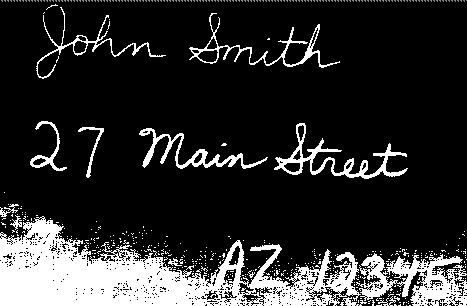 John Smith
27 Main Street
AZ 12345